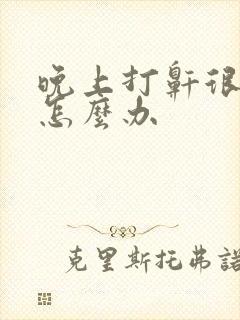 晚上打鼾很
怎麼办
克里斯托弗諾